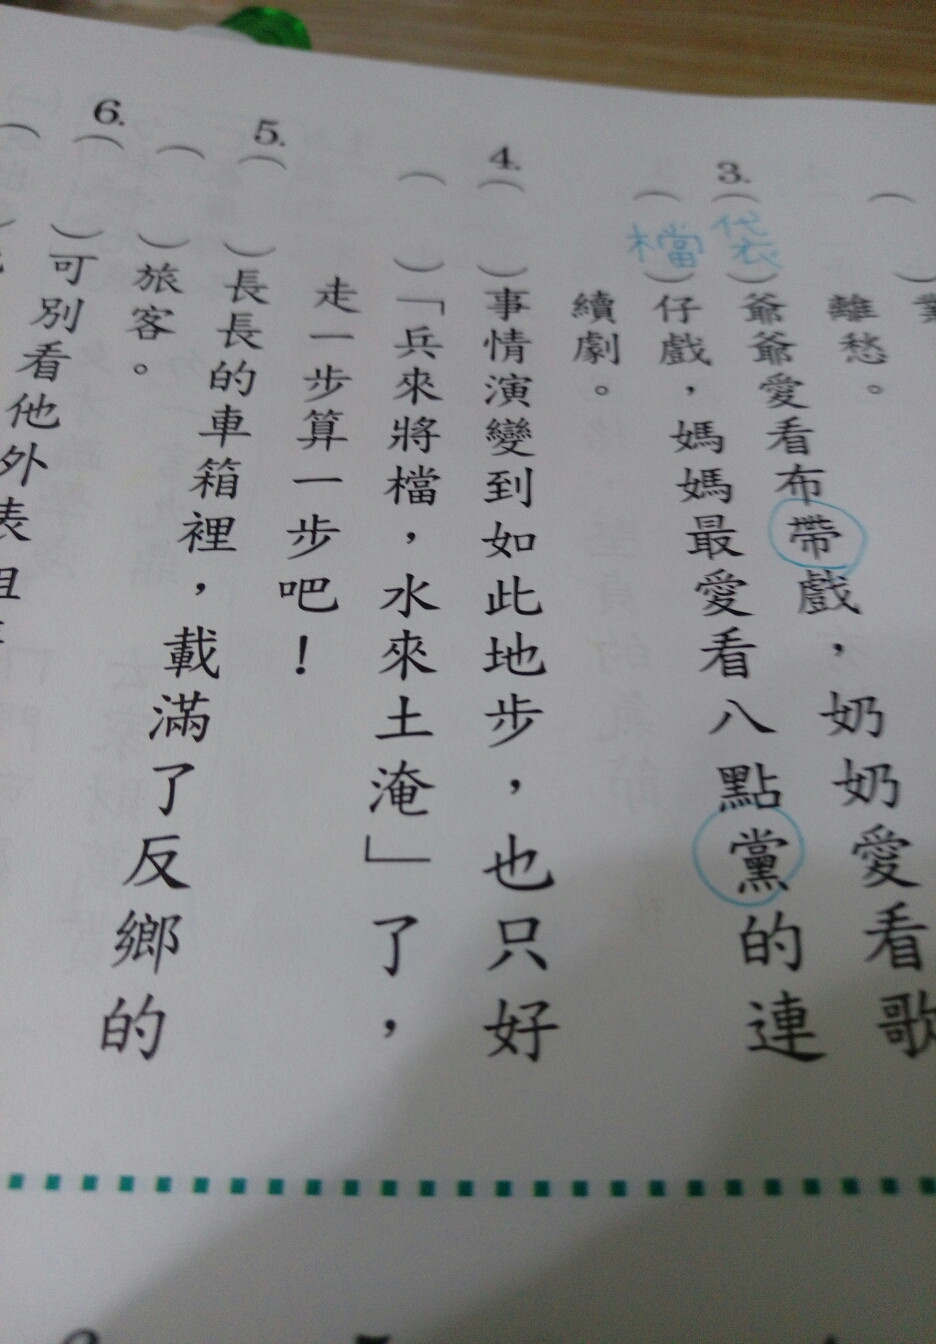 離愁。
3.(袋)爺爺愛看布帶戲，奶奶愛看歌
(檔)仔戲，媽媽最愛看八點黨的連
續劇。
4.( )事情演變到如此地步，也只好
( )「兵來將檔，水來土淹」了，
走一步算一步吧！
5.( )長長的車箱裡，載滿了反鄉的
( )旅客。
6.( )可別看他外表